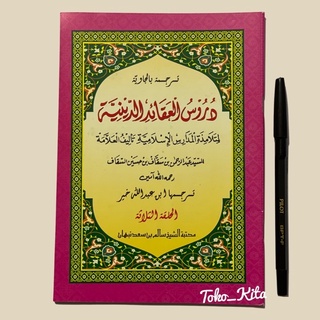 ترجمة بالجاوية
دُرُوسُ الْعَقَائِدِ الدِّينِيَّةِ
لِتَلَامِذَةِ الْمَدَارِسِ الْإِسْلَامِيَّةِ تَأْلِيفُ الْعَلَّامَةِ
السيد عبد الرحمن بن سقاف بن حسين السقاف
رحمه الله آمين
ترجمها ابن عبد الله خير
الحلقة الثلاثة
مكتبة الشيخ سالم بن سعد نبهان
Toko_Kita
PILOT